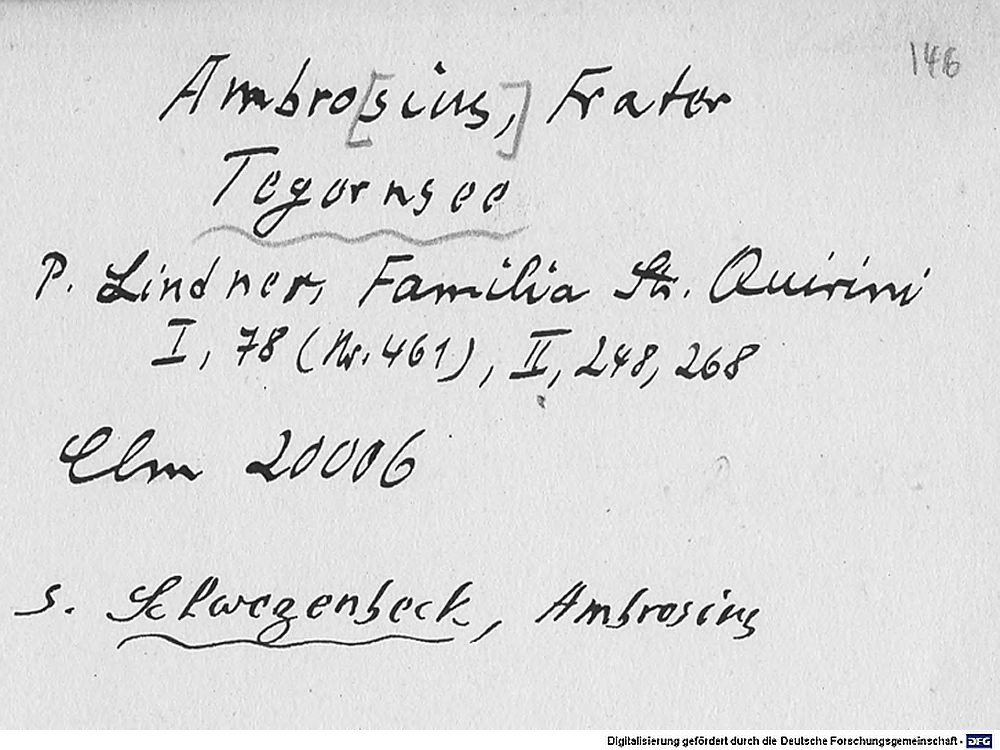 146
Ambro[sius,] Frater
Tegernsee
P. Lindner, Familia St. Quirini
I, 78 (Nr. 461), II, 248, 268
Clm 20006
s. Schwezenbeck, Ambrosius
Digitalisierung gefördert durch die Deutsche Forschungsgemeinschaft - DFG